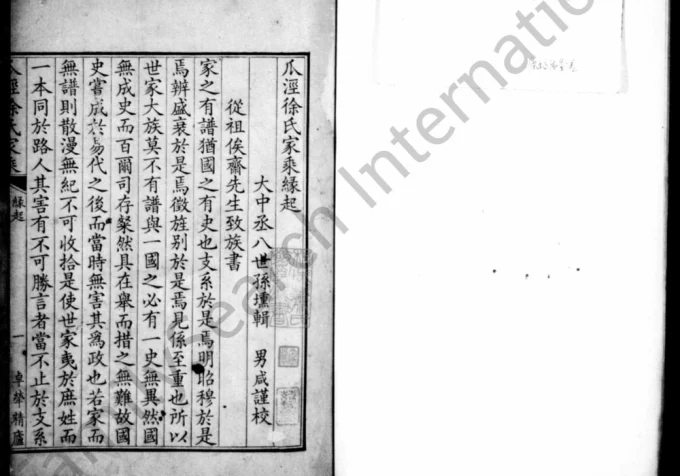 瓜涇徐氏家乘緣起
大中丞八世孫壎輯　男咸謹校
從祖俟齋先生致族書
家之有譜猶國之有史也支系於是焉明昭穆於是
焉辨盛衰於是焉徵旌别於是焉見係至重也所以
世家大族莫不有譜與一國之必有一史無異然國
無成史而百爾司存粲然具在舉而措之無難故國
史嘗成於易代之後而當時無害其爲政也若家而
無譜則散漫無紀不可收拾是使世家夷於庶姓而
一本同於路人其害有不可勝言者當不止於支系
瓜涇徐氏家乘
緣起
一
卓犖精廬
Search Internatio